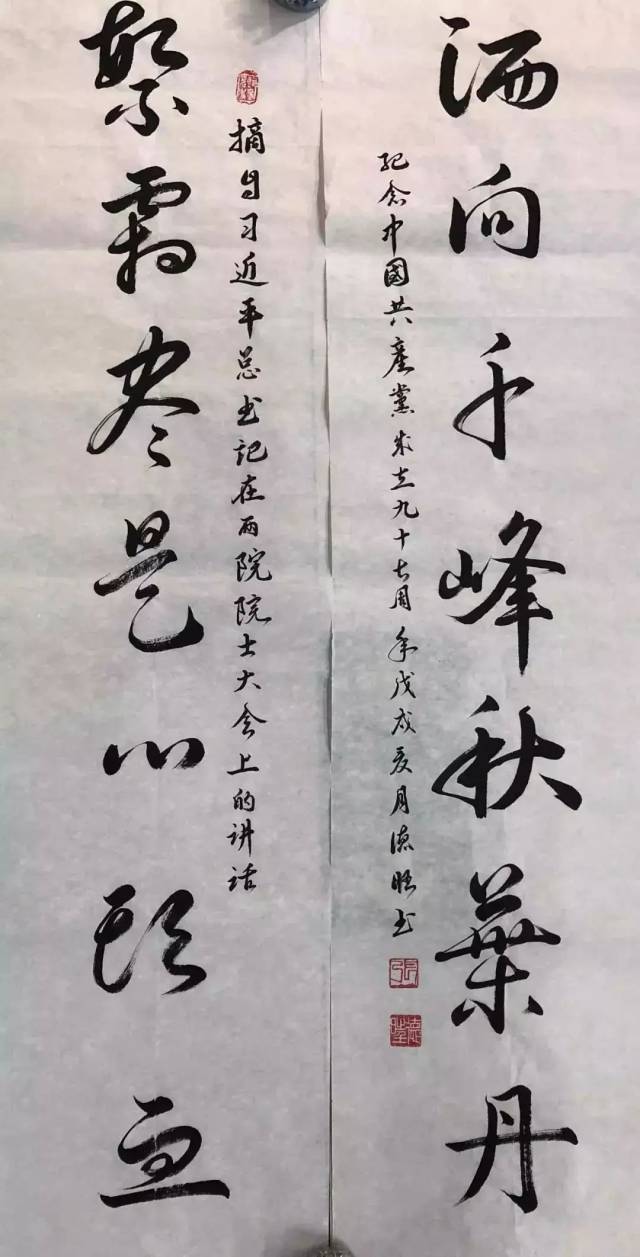 繁霜尽是心頭血
摘自习近平总书记在两院院士大会上的讲话
洒向千峰秋葉丹
紀念中國共產黨成立九十七周年戊戌夏月德书